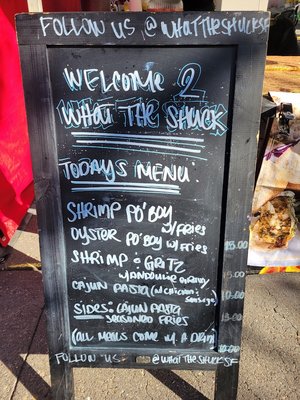 FOLLOW US @WHATTHESHUCKSF
WELCOME 2
WHAT THE SHUCK
TODAYS MENU:
SHRIMP PO'BOY W/FRIES
OYSTER PO'BOY W/FRIES 15.00
SHRIMP & GRITZ
W/ANDOUILLE GRAVY
CAJUN PASTA (W/CHICKEN & SAUSAGE)
SIDES: CAJUN PASTA
SEASONED FRIES
(ALL MEALS COME W. A DRINK)
FOLLOW US @WHATTHESHUCKSF